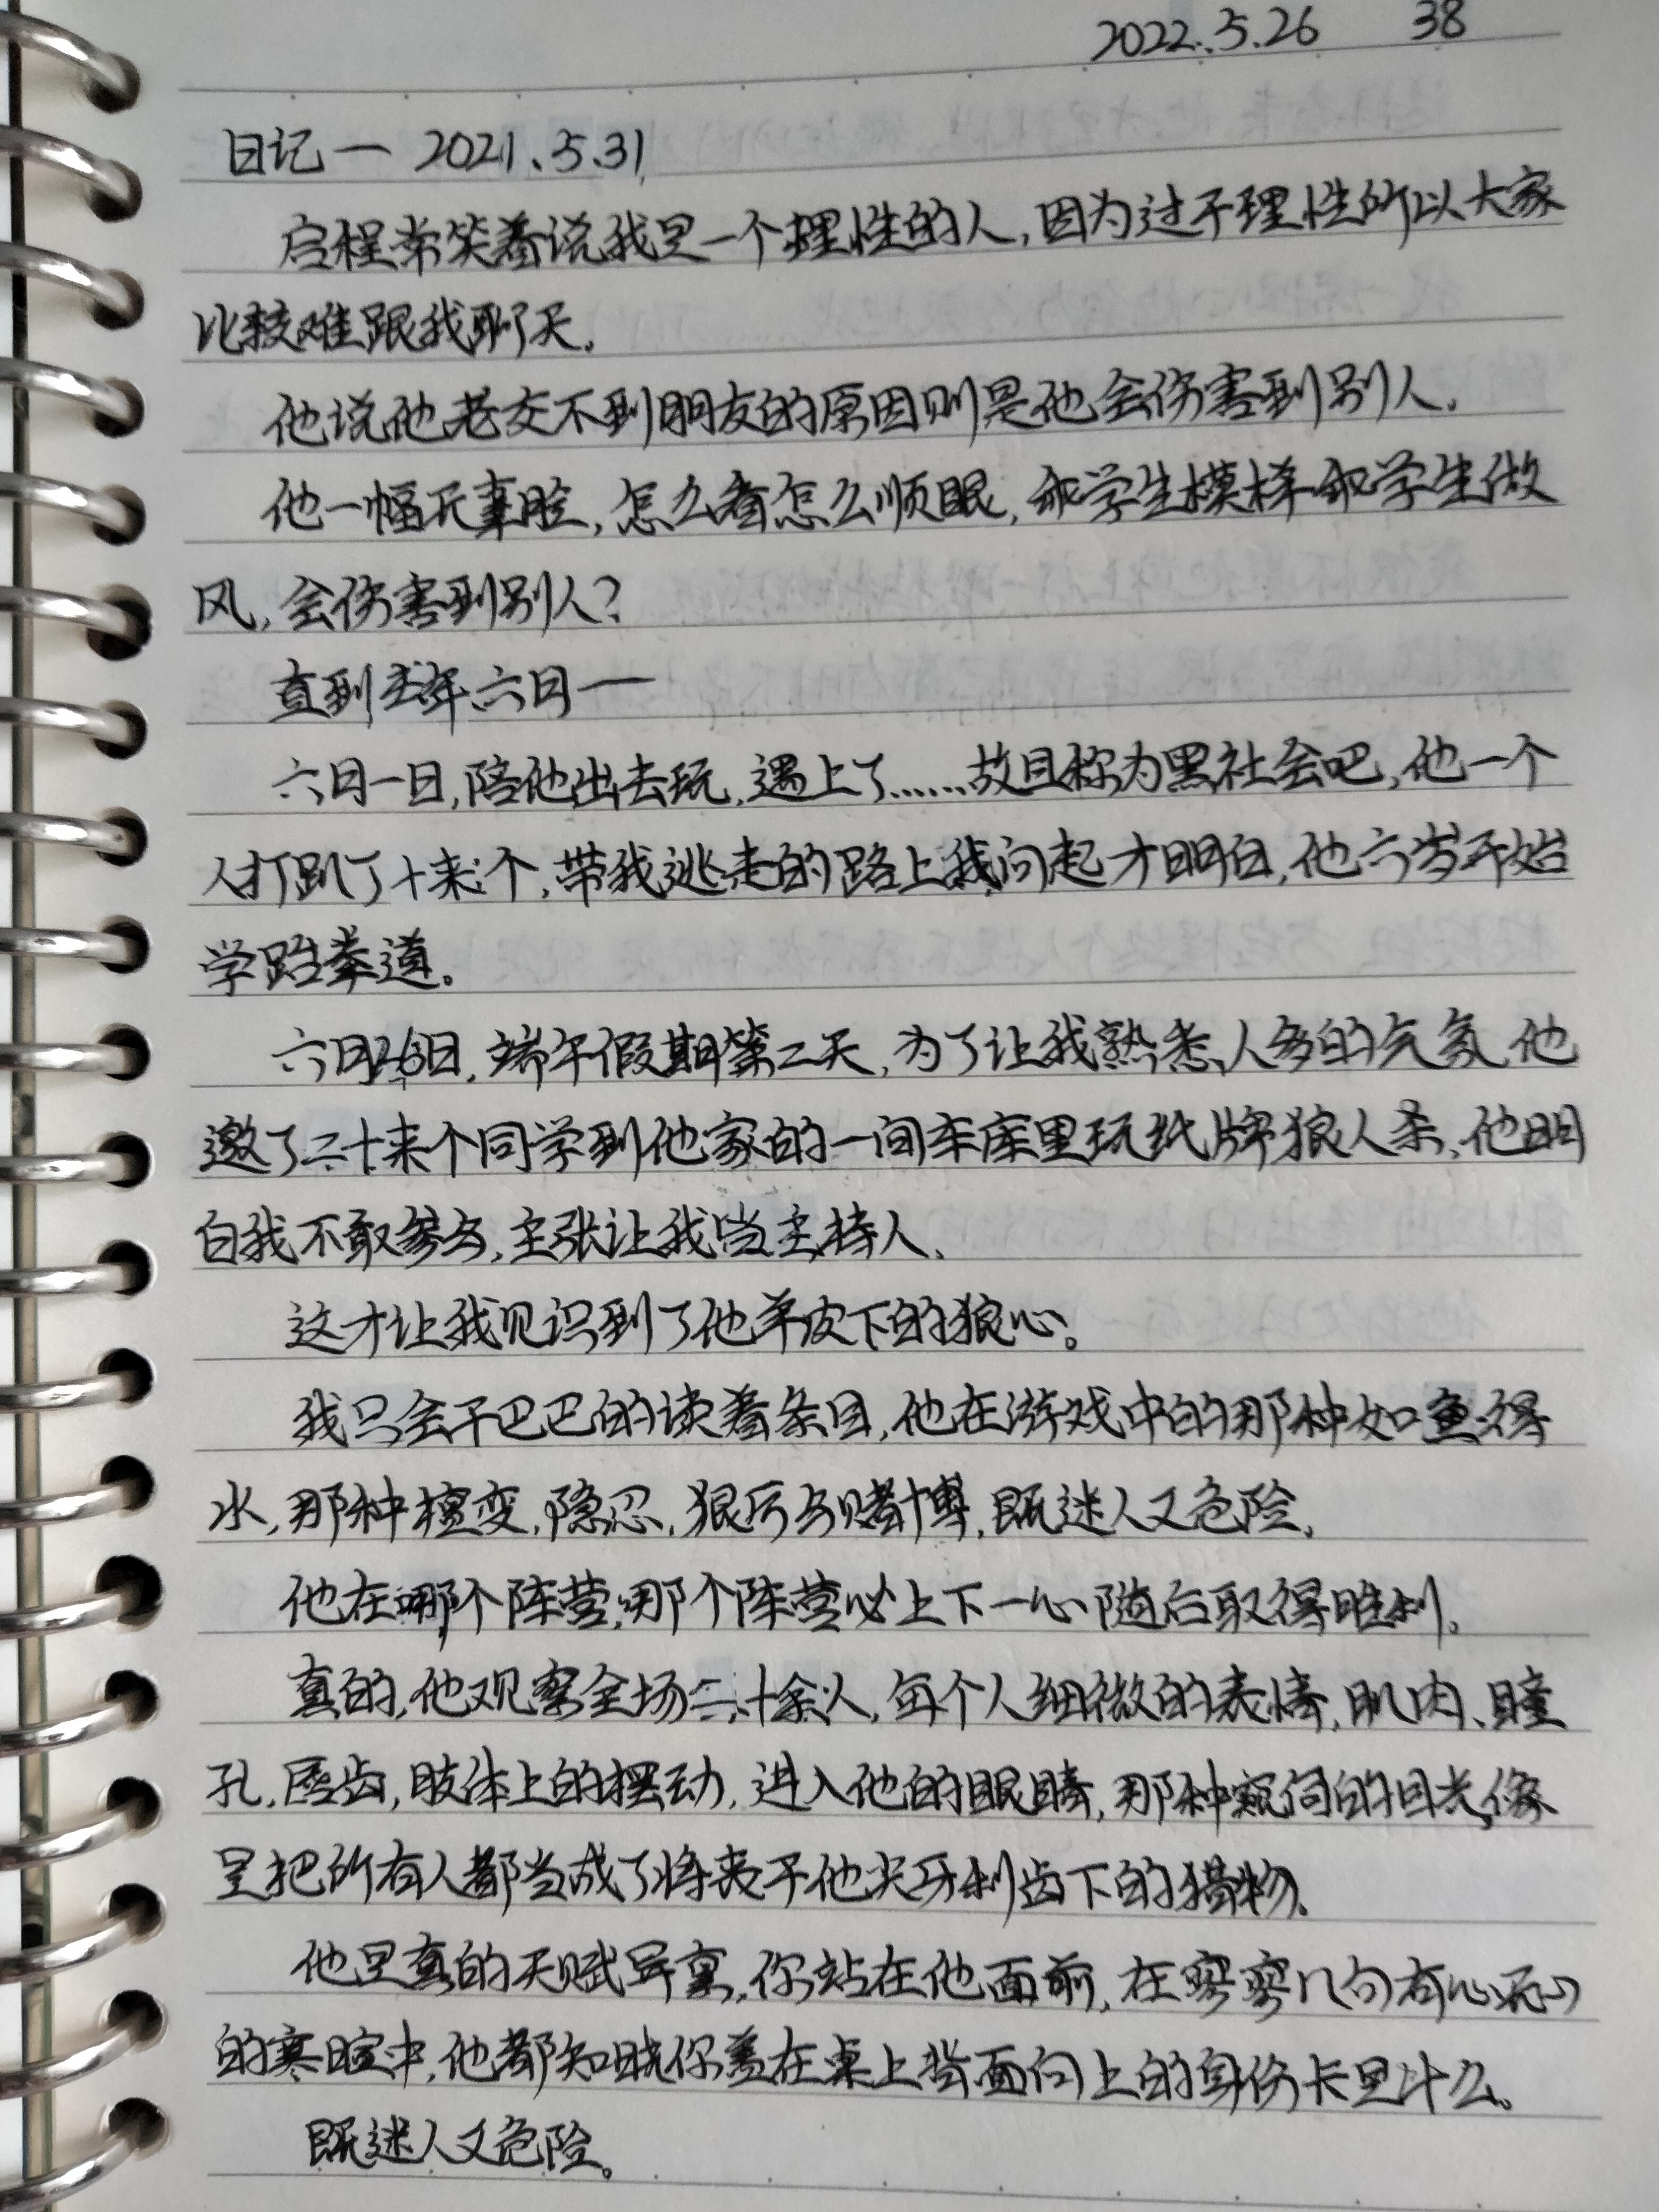 2022.5.26 38
日记一 2021.5.31
启程常笑着说我是一个理性的人,因为过于理性所以大家
比较难跟我聊天.
他说他老交不到朋友的原因则是他会伤害到别人.
他一幅无辜脸,怎么看怎么顺眼,乖学生模样乖学生做
风,会伤害到别人?
直到去年六月一
六月一日,陪他出去玩,遇上了……故且称为黑社会吧,他一个
人打趴了十来个,带我逃走的路上我问起才明白,他六岁开始
学跆拳道。
六月26日,端午假期第二天,为了让我熟悉人多的气氛,他
邀了二十来个同学到他家的一间车库里玩纸牌狼人杀,他明
白我不敢参与,主张让我当主持人、
这才让我见识到了他羊皮下的狼心。
我只会干巴巴的读着条目,他在游戏中的那种如鱼得
水,那种擅变,隐忍,狠厉与赌博,既迷人又危险,
他在哪个阵营,哪个阵营必上下一心随后取得胜利。
真的,他观察全场二十余人,每个人细微的表情,肌肉、瞳
孔,唇齿,肢体上的摆动,进入他的眼睛,那种窥伺的目光,像
是把所有人都当成了将丧于他尖牙利齿下的猎物.
他是真的天赋异禀,你站在他面前,在寥寥几句有心无心
的寒暄中,他都知晓你盖在桌上背面向上的身份卡是什么。
既迷人又危险。